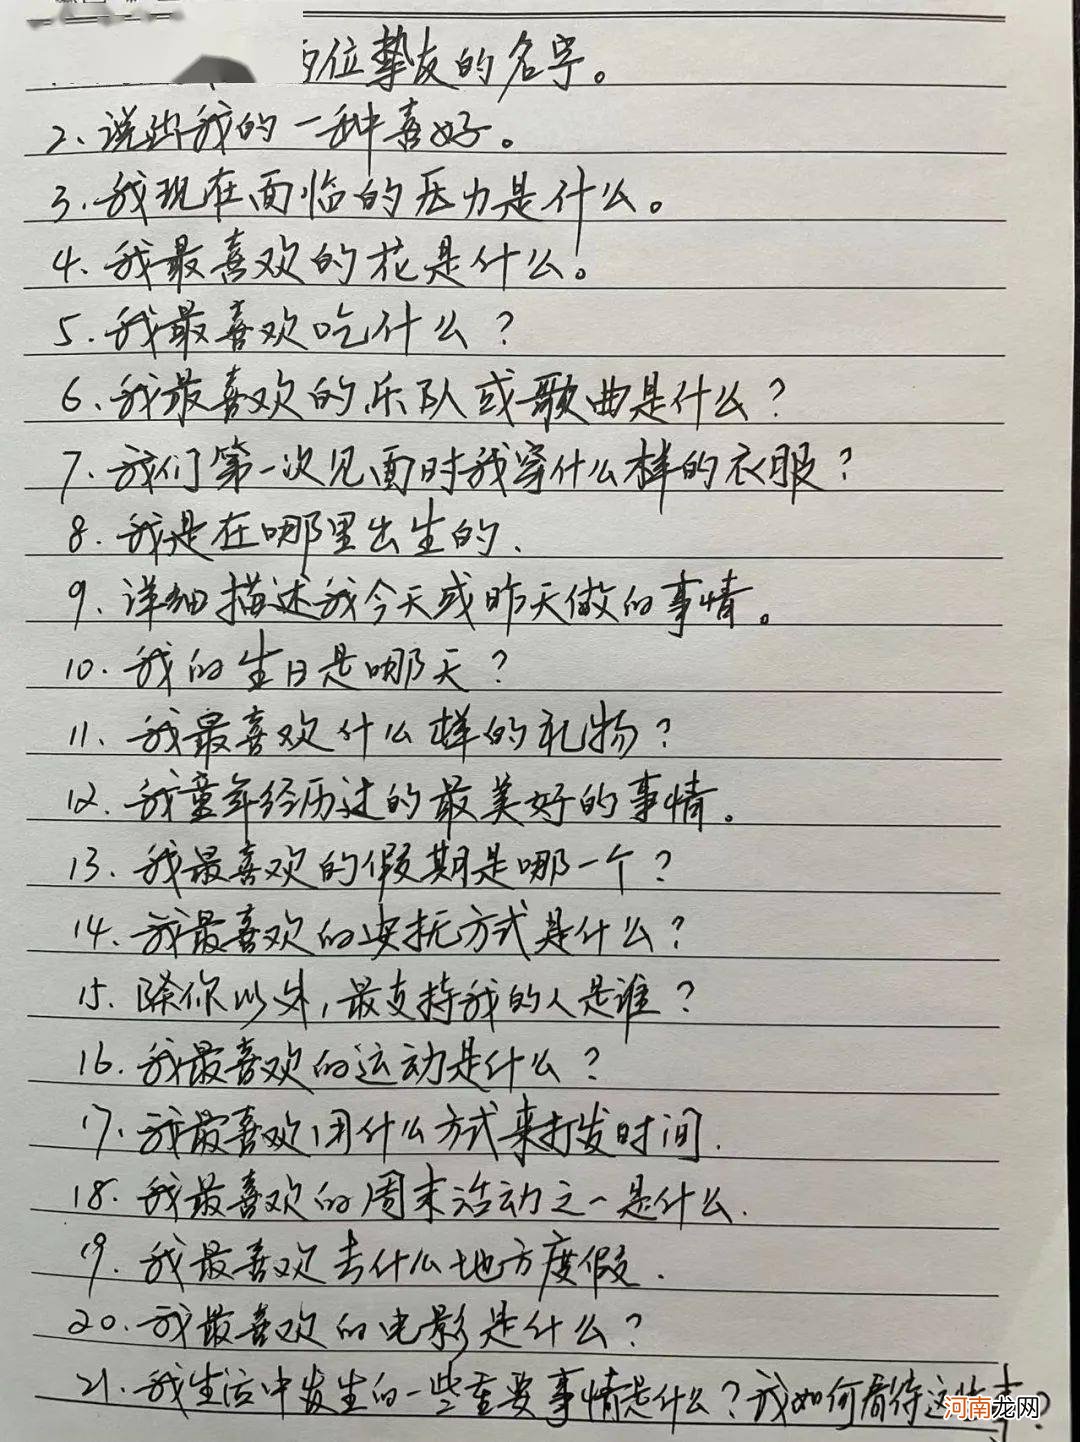 位挚友的名字。
2、说出我的一种喜好。
3.我现在面临的压力是什么。
4、我最喜欢的花是什么。
5.我最喜欢吃什么？
6、我最喜欢的乐队或歌曲是什么？
7、我们第一次见面时我穿什么样的衣服？
8.我是在哪里出生的、
9、详细描述我今天或昨天做的事情。
10.我的生日是哪天？
11、我最喜欢什么样的礼物？
12.我童年经历过的最美好的事情。
13、我最喜欢的假期是哪一个？
14、我最喜欢的安抚方式是什么？
15.除你以外,最支持我的人是谁？
16.我最喜欢的运动是什么？
17.我最喜欢用什么方式来打发时间.
18.我最喜欢的周末活动之一是什么.
19.我最喜欢去什么地方度假.
20.我最喜欢的电影是什么？
21.我生活中发生的一些重要事情是什么？我如何看待这些事？
河南龙网